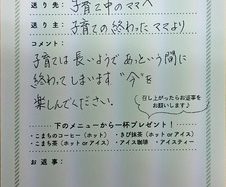 送り先：子育て中のママへ
送り主：子育ての終わったママより
コメント：
子育ては長いようであっという間に
終わってしまいます "今"を
楽しんでください。
召し上がったらお返事を
お願いします♪
下のメニューから一杯プレゼント！
・こまちのコーヒー（ホット） ・きび抹茶（ホット or アイス）
・こまち茶（ホット or アイス） ・アイス珈琲 ・アイスティー
お返事：